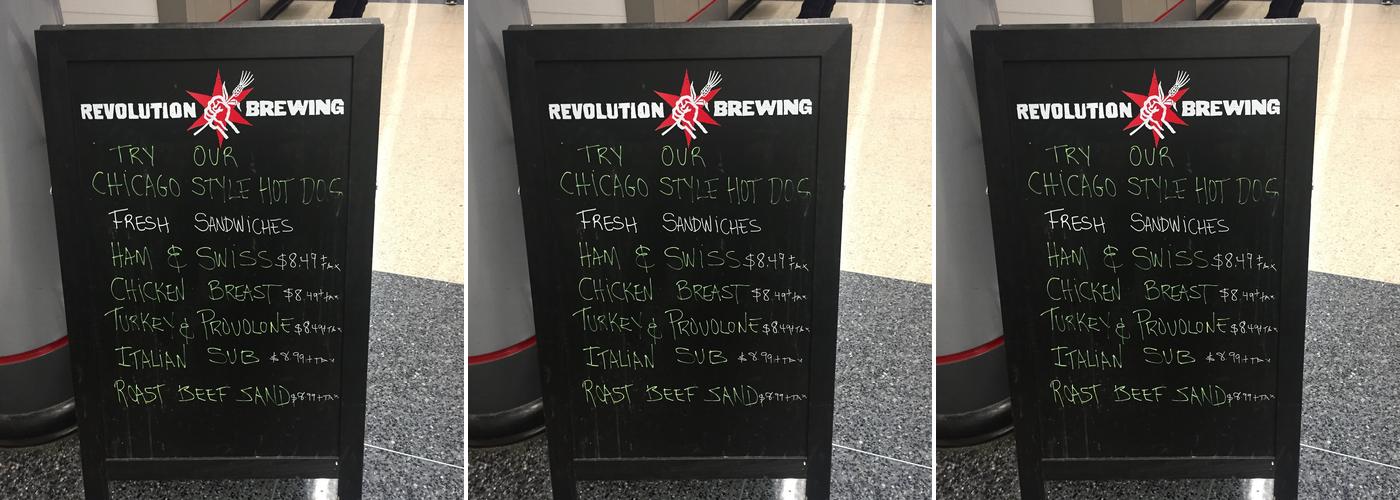 REVOLUTION BREWING
TRY OUR
CHICAGO STYLE HOT DOG
FRESH SANDWICHES
HAM & SWISS $8.49 + TAX
CHICKEN BREAST $8.49 + tax
TURKEY & PROVOLONE $8.49 + TAX
ITALIAN SUB $8.99 + TAX
ROAST BEEF SAND $8.99 + TAX
REVOLUTION BREWING
TRY OUR
CHICAGO STYLE HOT DOG
FRESH SANDWICHES
HAM & SWISS $8.49 + TAX
CHICKEN BREAST $8.49 + tax
TURKEY & PROVOLONE $8.49 + TAX
ITALIAN SUB $8.99 + TAX
ROAST BEEF SAND $8.99 + TAX
REVOLUTION BREWING
TRY OUR
CHICAGO STYLE HOT DOG
FRESH SANDWICHES
HAM & SWISS $8.49 + TAX
CHICKEN BREAST $8.49 + tax
TURKEY & PROVOLONE $8.49 + TAX
ITALIAN SUB $8.99 + TAX
ROAST BEEF SAND $8.99 + TAX